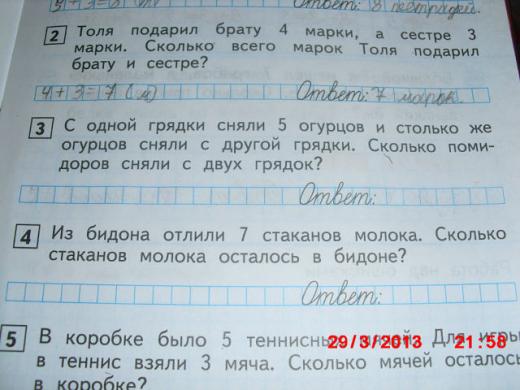 Ответ: 8
2 Толя подарил брату 4 марки, а сестре 3
марки. Сколько всего марок Толя подарил
брату и сестре?
4+3=7 (м) Ответ: 7 марок.
3 С одной грядки сняли 5 огурцов и столько же
огурцов сняли с другой грядки. Сколько поми-
доров сняли с двух грядок?
Ответ:
4 Из бидона отлили 7 стаканов молока. Сколько
стаканов молока осталось в бидоне?
Ответ:
5 В коробке было 5 теннисных мячей. Для игры
29/3/2013 21:58
в теннис взяли 3 мяча. Сколько мячей осталось
в коробке?